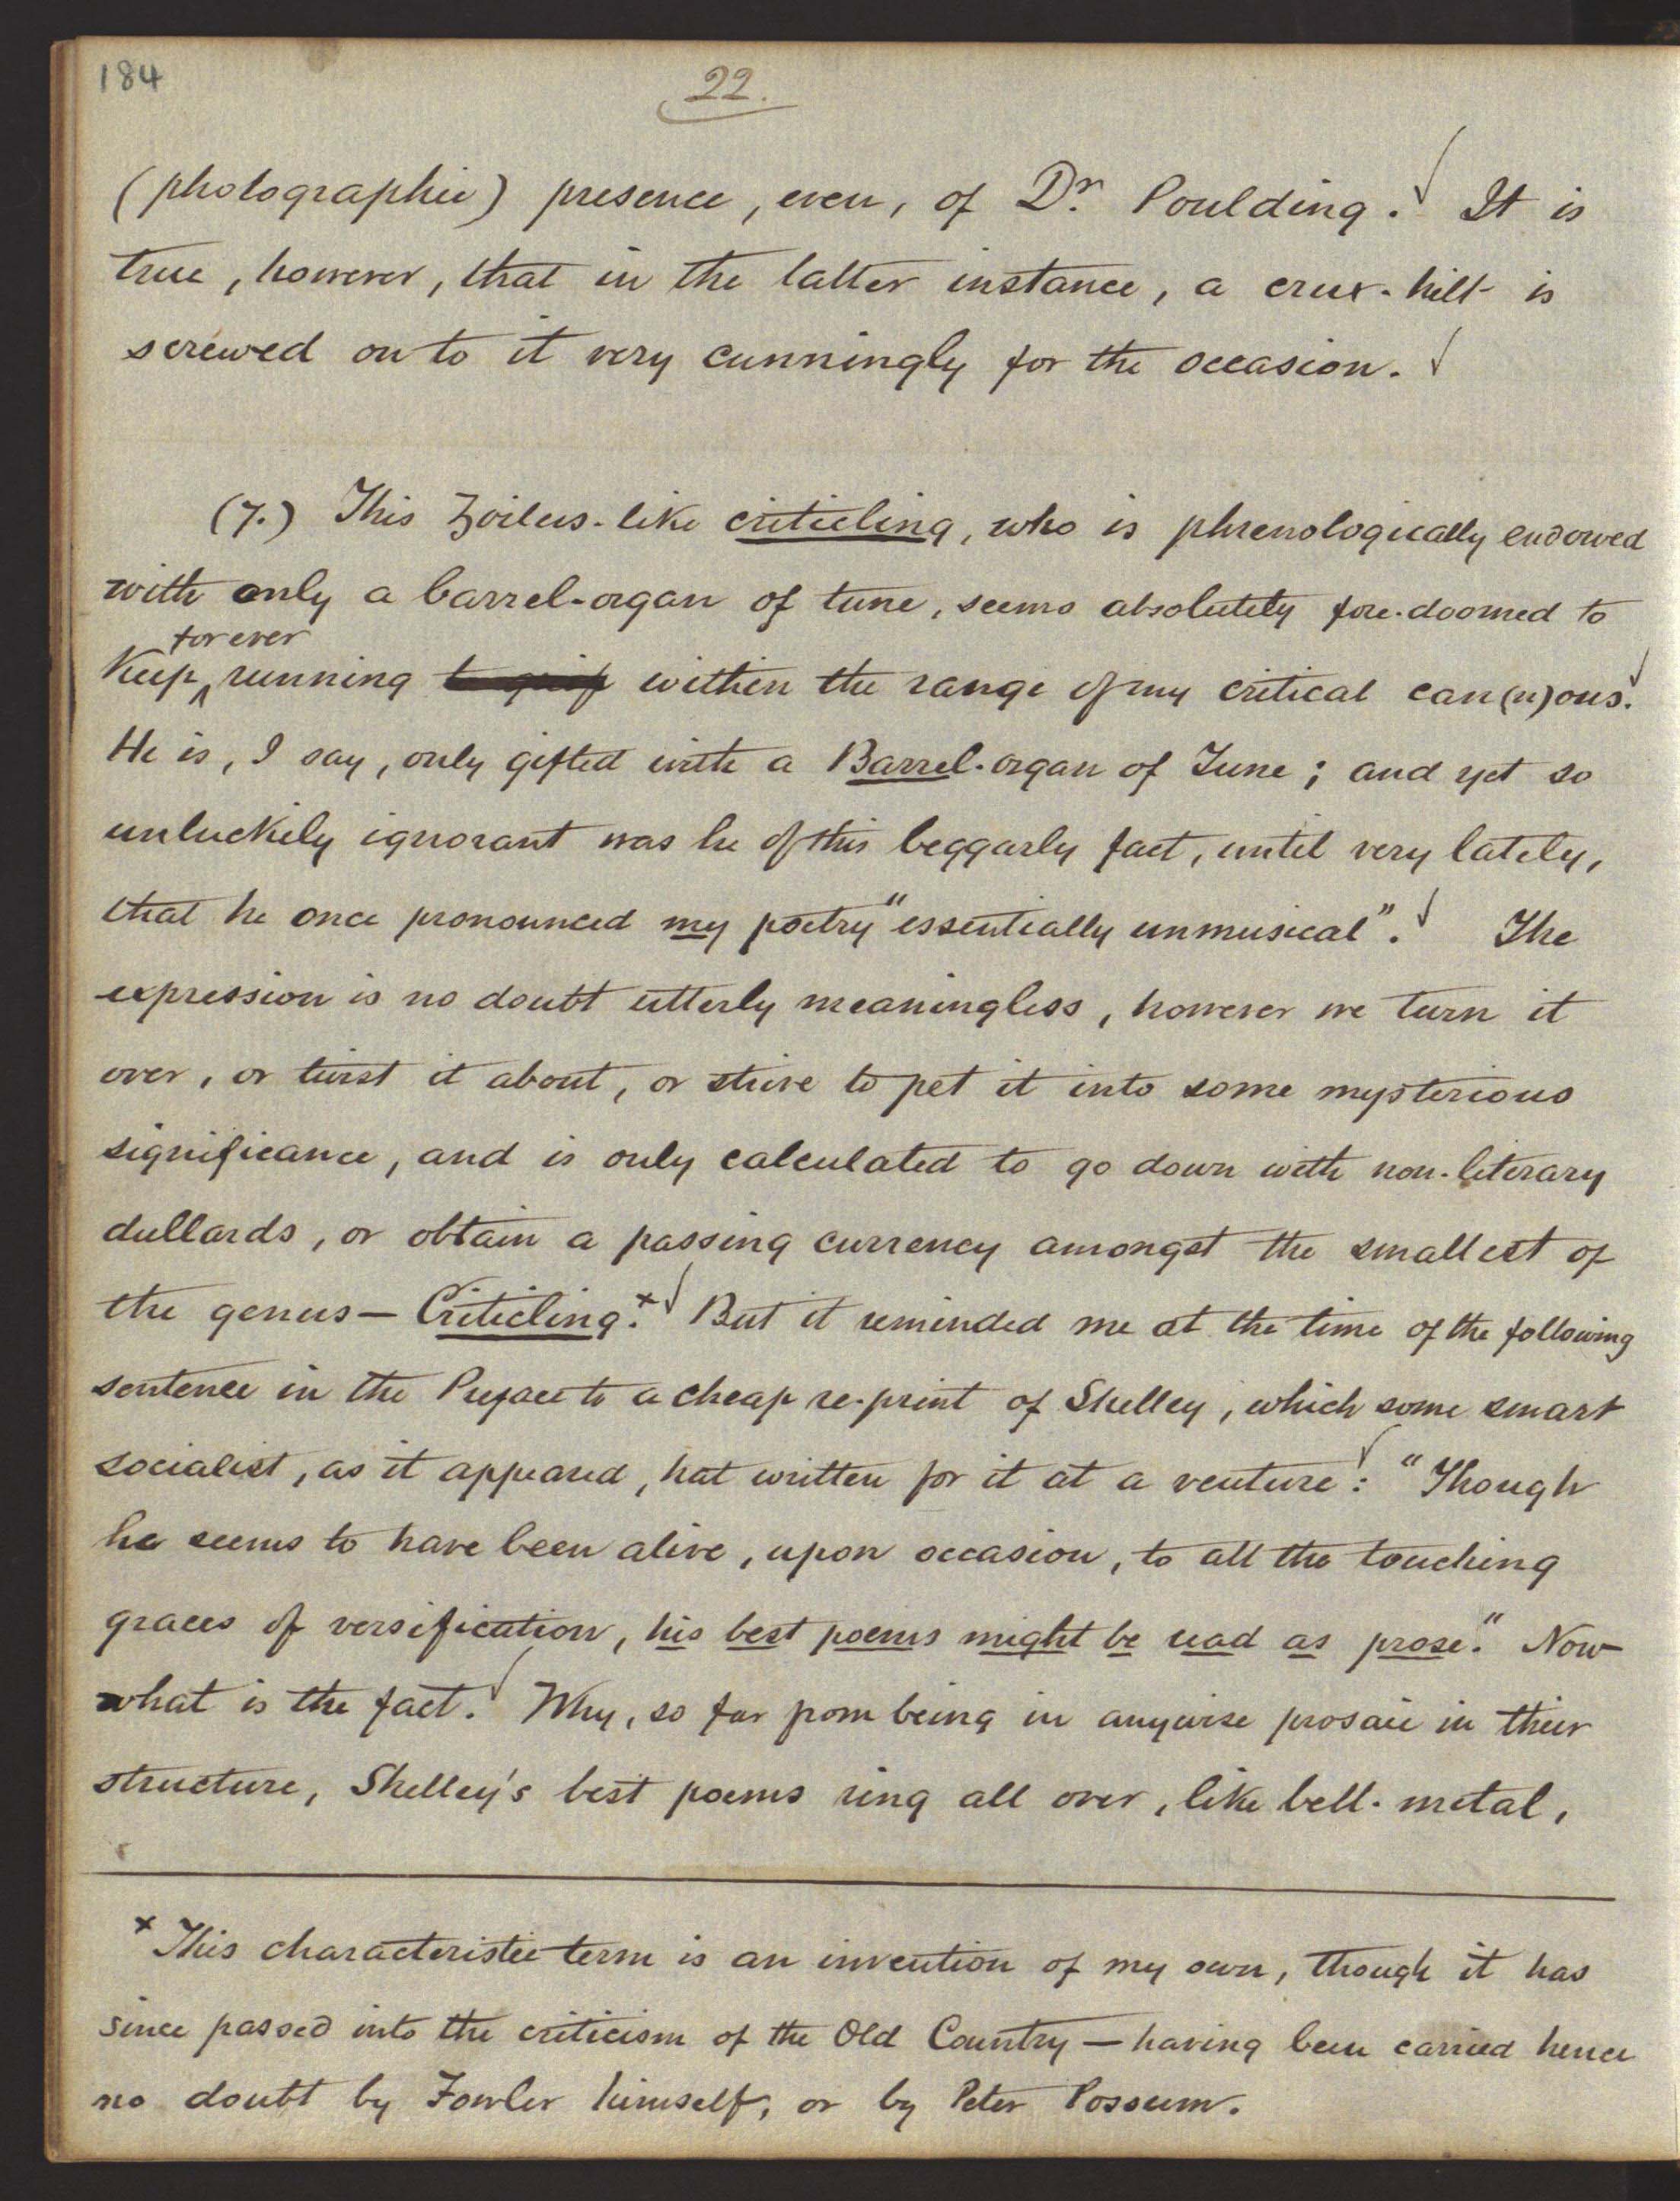 184
22.
(photographic) presence, even, of Dr. Poulding. It is
true, however, that in the latter instance, a crux-hilt is
screwed on to it very cunningly for the occasion.
(7.) This Zoilus-like criticling, who is phrenologically endowed
with only a barrel-organ of tune, seems absolutely fore-doomed to
forever
keep running within the range of my critical can(n)ons.
He is, I say, only gifted with a Barrel-organ of Tune; and yet so
unluckily ignorant was he of this beggarly fact, until very lately,
that he once pronounced my poetry "essentially unmusical". The
expression is no doubt utterly meaningless, however we turn it
over, or twist it about, or strive to pet it into some mysterious
significance, and is only calculated to go down with non-literary
dullards, or obtain a passing currency amongst the smallest of
the genus — Criticling.x But it reminded me at the time of the following
sentence in the Preface to a cheap re-print of Shelley, which some smart
socialist, as it appeared, hat written for it at a venture: "Though
he seems to have been alive, upon occasion, to all the touching
graces of versification, his best poems might be read as prose." Now
what is the fact. Why, so far from being in anywise prosaic in their
structure, Shelley's best poems ring all over, like bell-metal,
x This characteristic term is an invention of my own, though it has
since passed into the criticism of the Old Country — having been carried hence
no doubt by Fowler himself, or by Peter Possum.